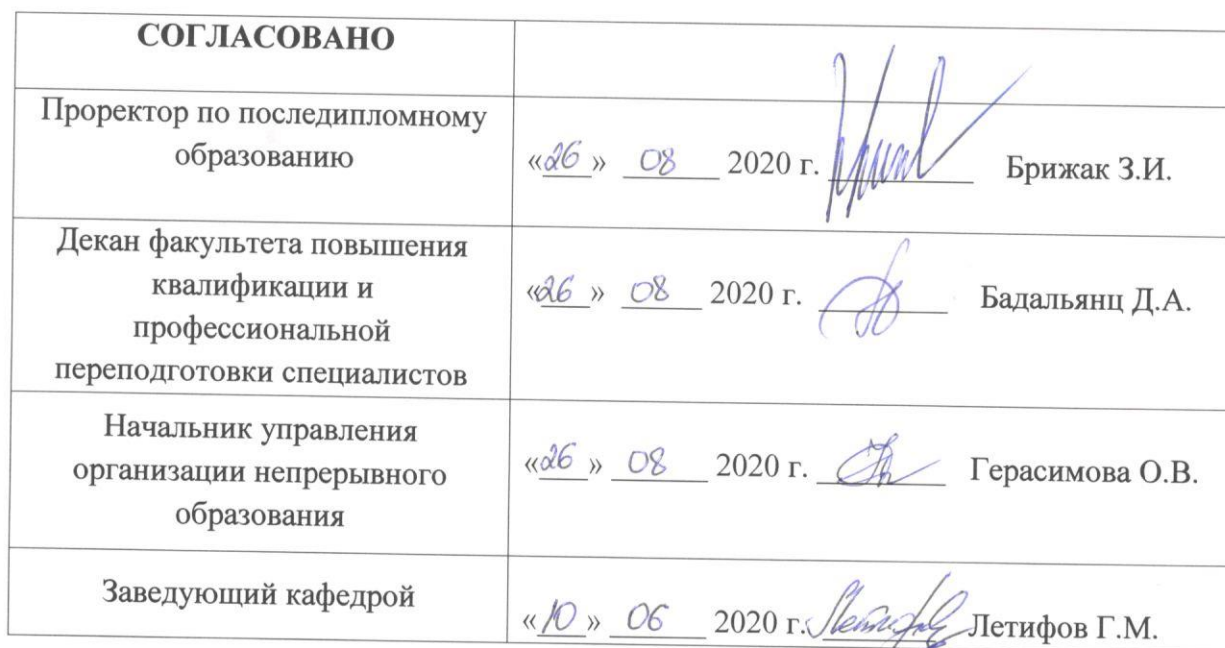 СОГЛАСОВАНО
Проректор по последипломному
образованию
«26» 08 2020 г. Брижак З.И.
Декан факультета повышения
квалификации и
профессиональной
переподготовки специалистов
«26» 08 2020 г. Бадальянц Д.А.
Начальник управления
организации непрерывного
образования
«26» 08 2020 г. Герасимова О.В.
Заведующий кафедрой
«10» 06 2020 г. Летифов Г.М.